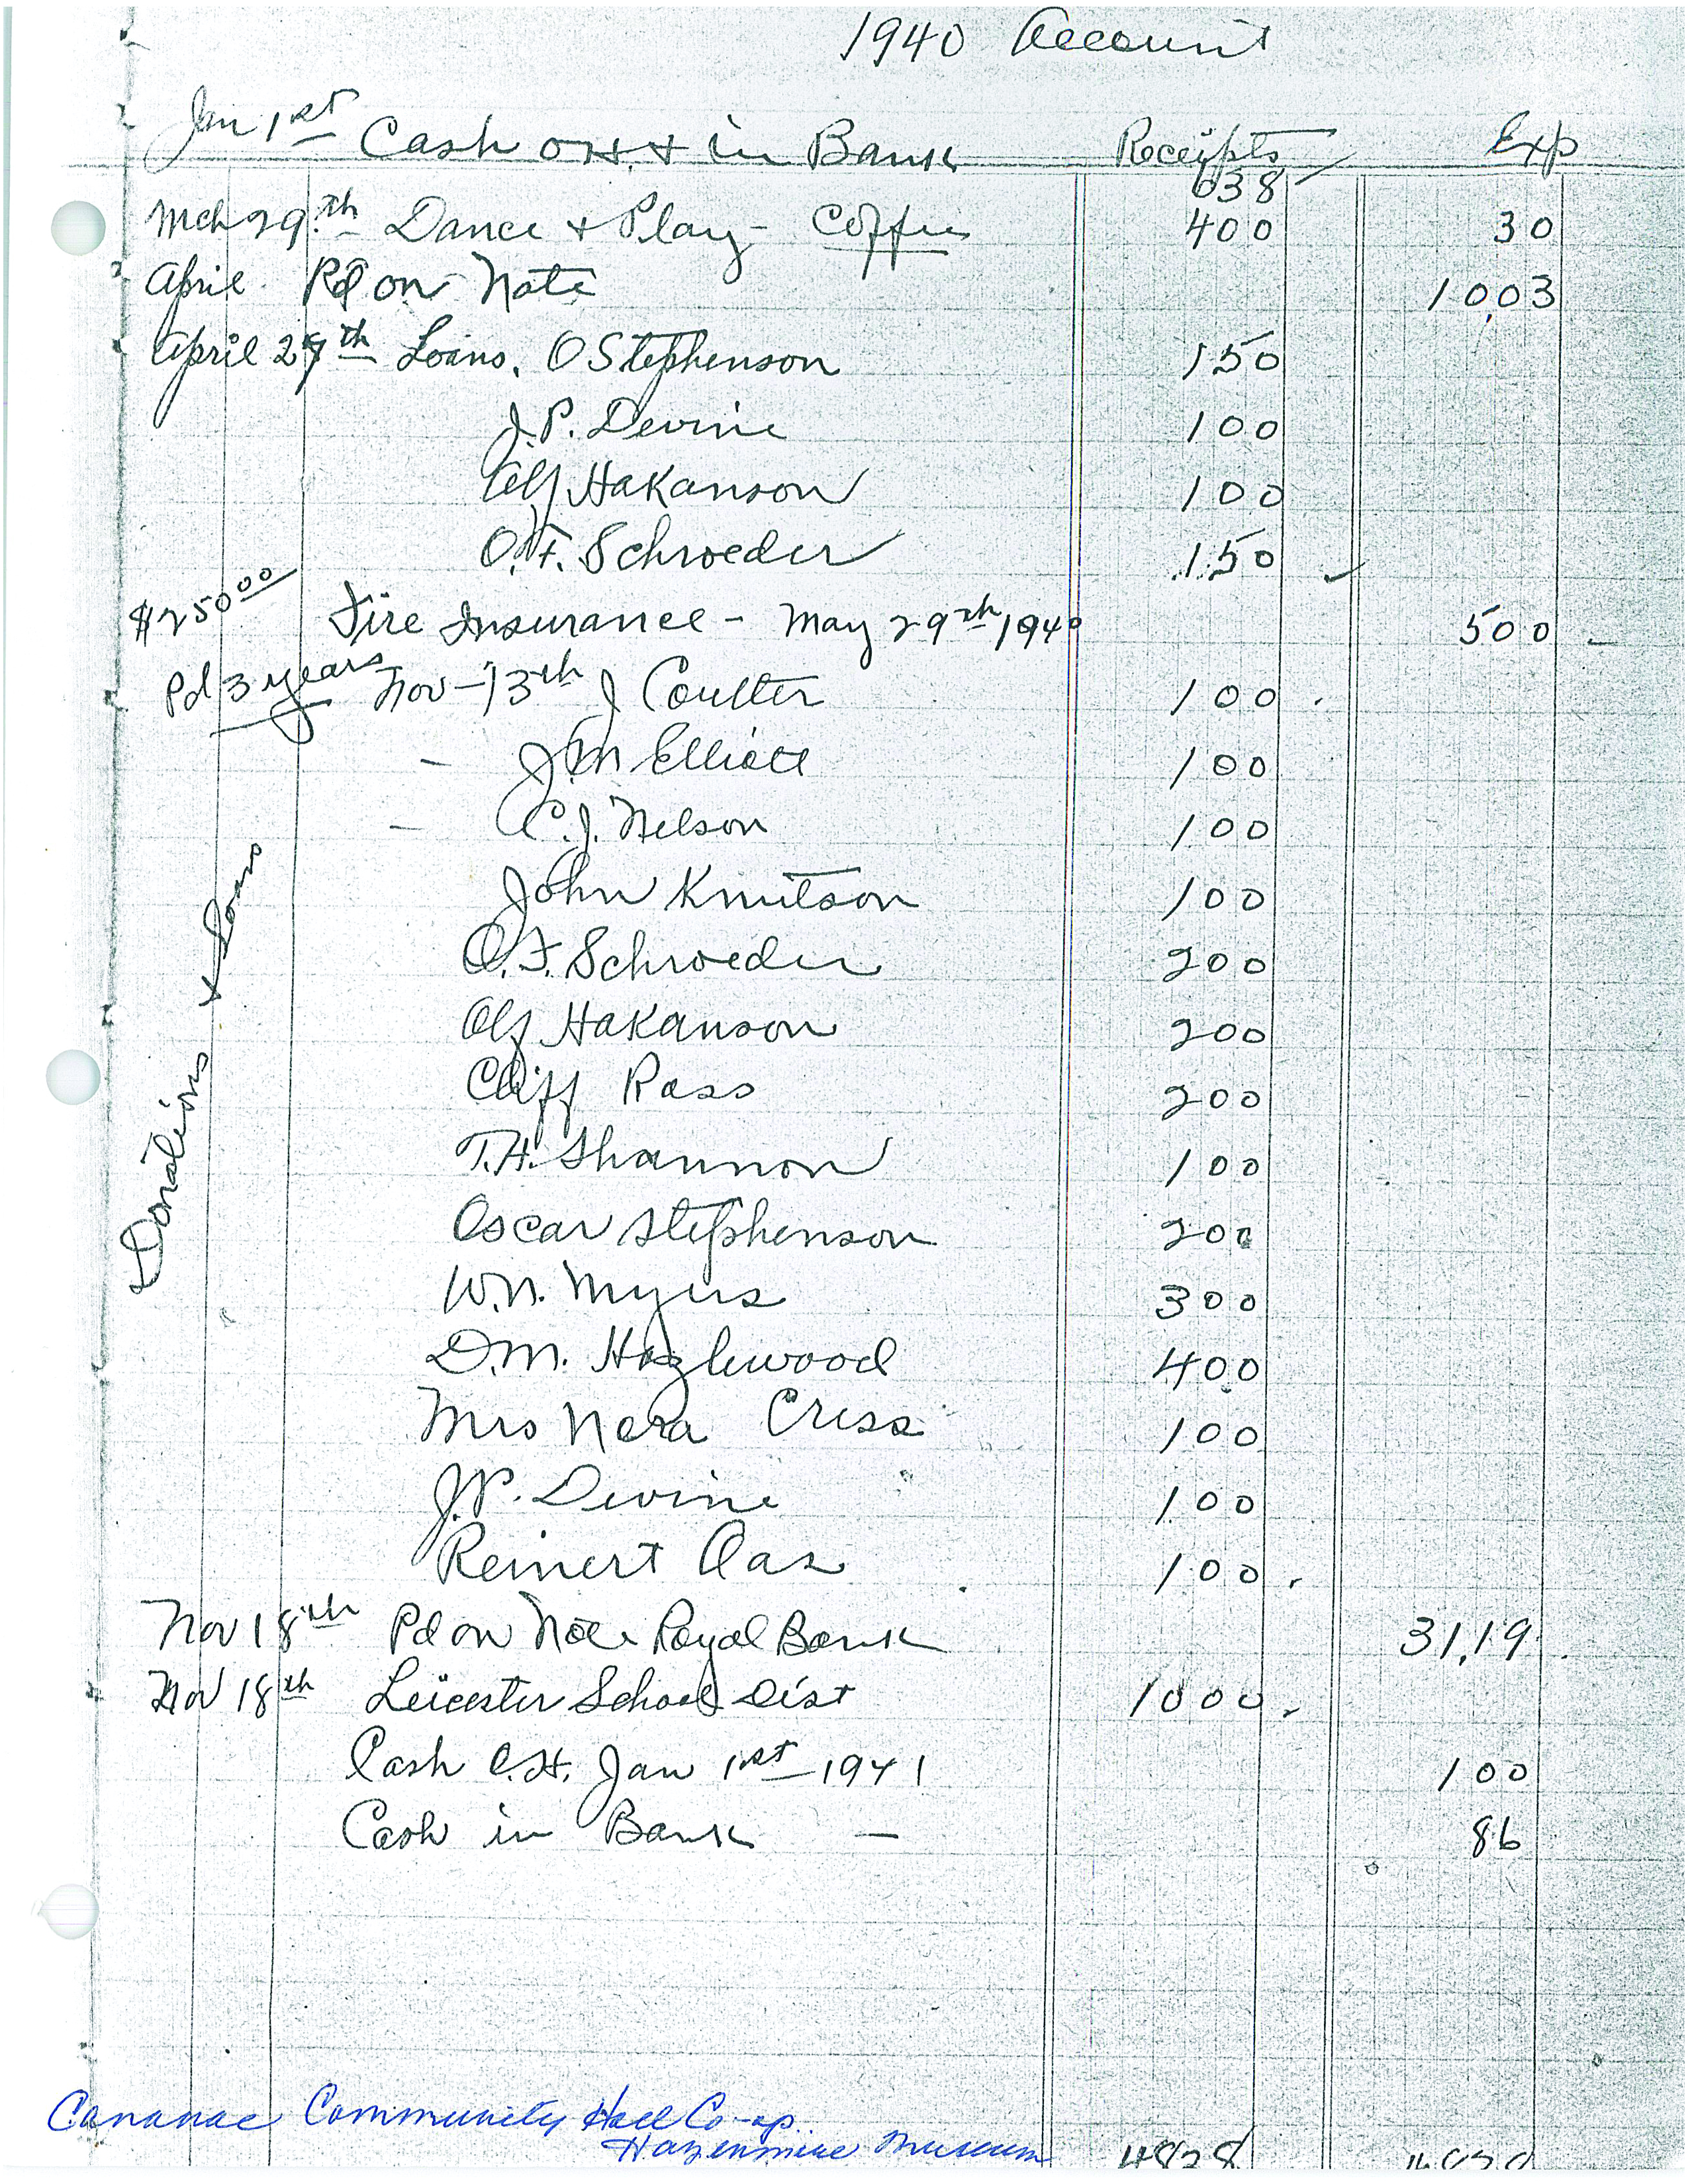 1940 Account
Jan 1st Cash on H. + in Bank Receipts Exp
638
Mch 29th Dance + Play - Coffee 400 30
April Pd on Note 1003
April 27th Loans, O Stephenson 150
J.P. Devine 100
Alf Hakanson 100
O.F. Schroeder 150
$250 00 Fire Insurance - May 29th 1940 500
Pd 3 years Nov - 13th J Coulter 100
- J.M Elliott 100
- C.J. Nelson 100
John Knutson 100
O.F. Schroeder 200
Alf Hakanson 200
Cliff Ross 200
T.H. Shannon 100
Oscar Stephenson 200
W.N. Myers 300
D.M. Hazlewood 400
Mrs Nora Criss 100
J.P. Devine 100
Reinert Aas 100
Donations + Loans
Nov 18th Pd on Note Royal Bank 31,19
Nov 18th Leicester School Dist 1000
Cash O.H. Jan 1st 1941 100
Cash in Bank — 86
Cananae Community Hall Co-op
Hazenmore Museum 4828 4828